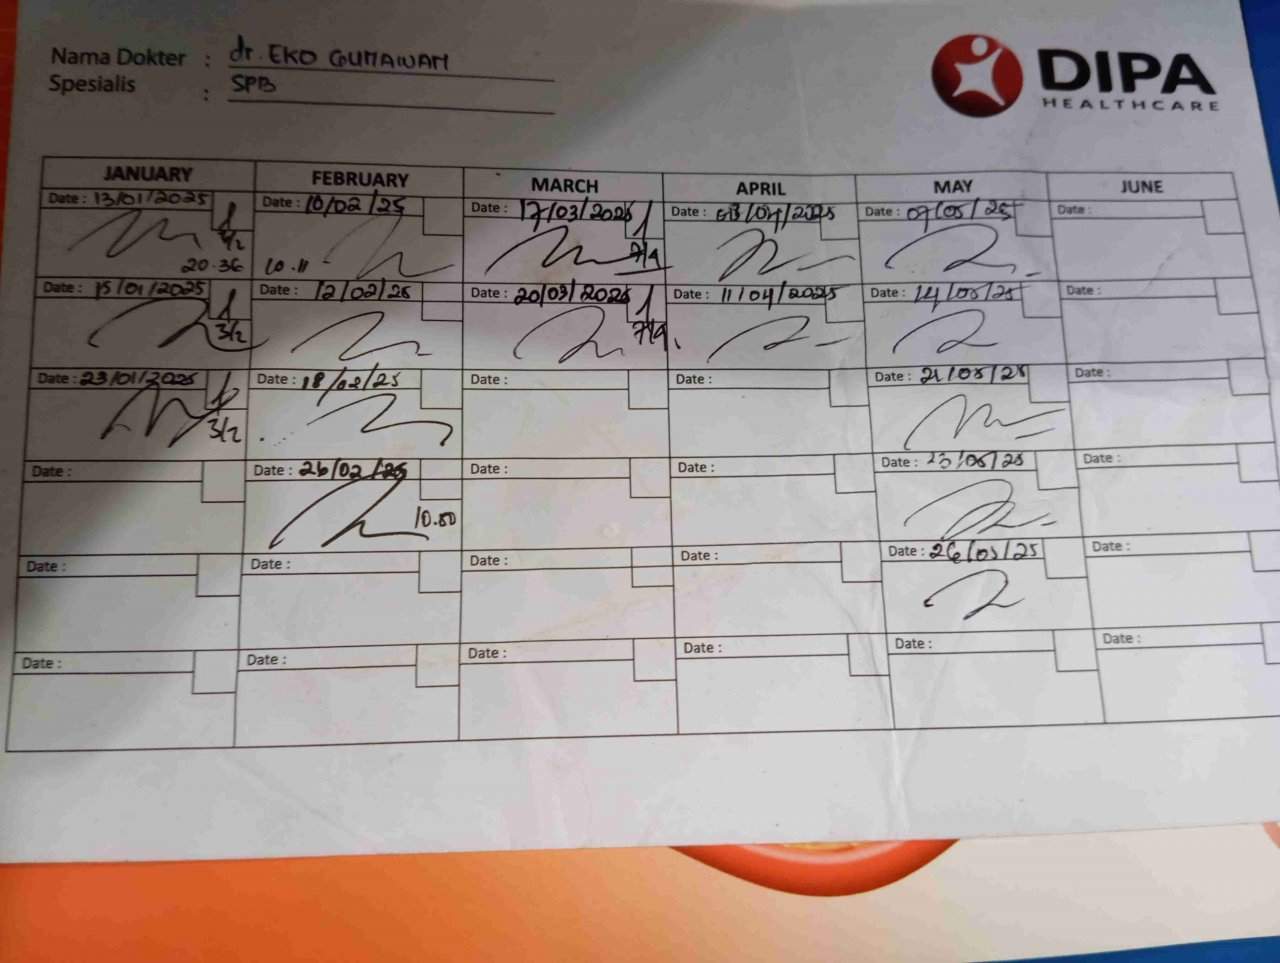 Nama Dokter : dr. EKO GUNAWAN
Spesialis : SPB
DIPA
HEALTHCARE
JANUARY FEBRUARY MARCH APRIL MAY JUNE
Date : 13/01/2025 Date : 10/02/25 Date : 17/03/2025 Date : 03/04/2025 Date : 07/05/25 Date :
3/2 7/4
20.36 10.11
Date : 15/01/2025 Date : 12/02/25 Date : 20/03/2025 Date : 11/04/2025 Date : 14/05/25 Date :
3/2 7/4
Date : 23/01/2025 Date : 18/02/25 Date : Date : Date : 21/05/25 Date :
3/2
Date : Date : 26/02/25 Date : Date : Date : 23/05/25 Date :
10.50
Date : Date : Date : Date : Date : 26/05/25 Date :
Date : Date : Date : Date : Date : Date :